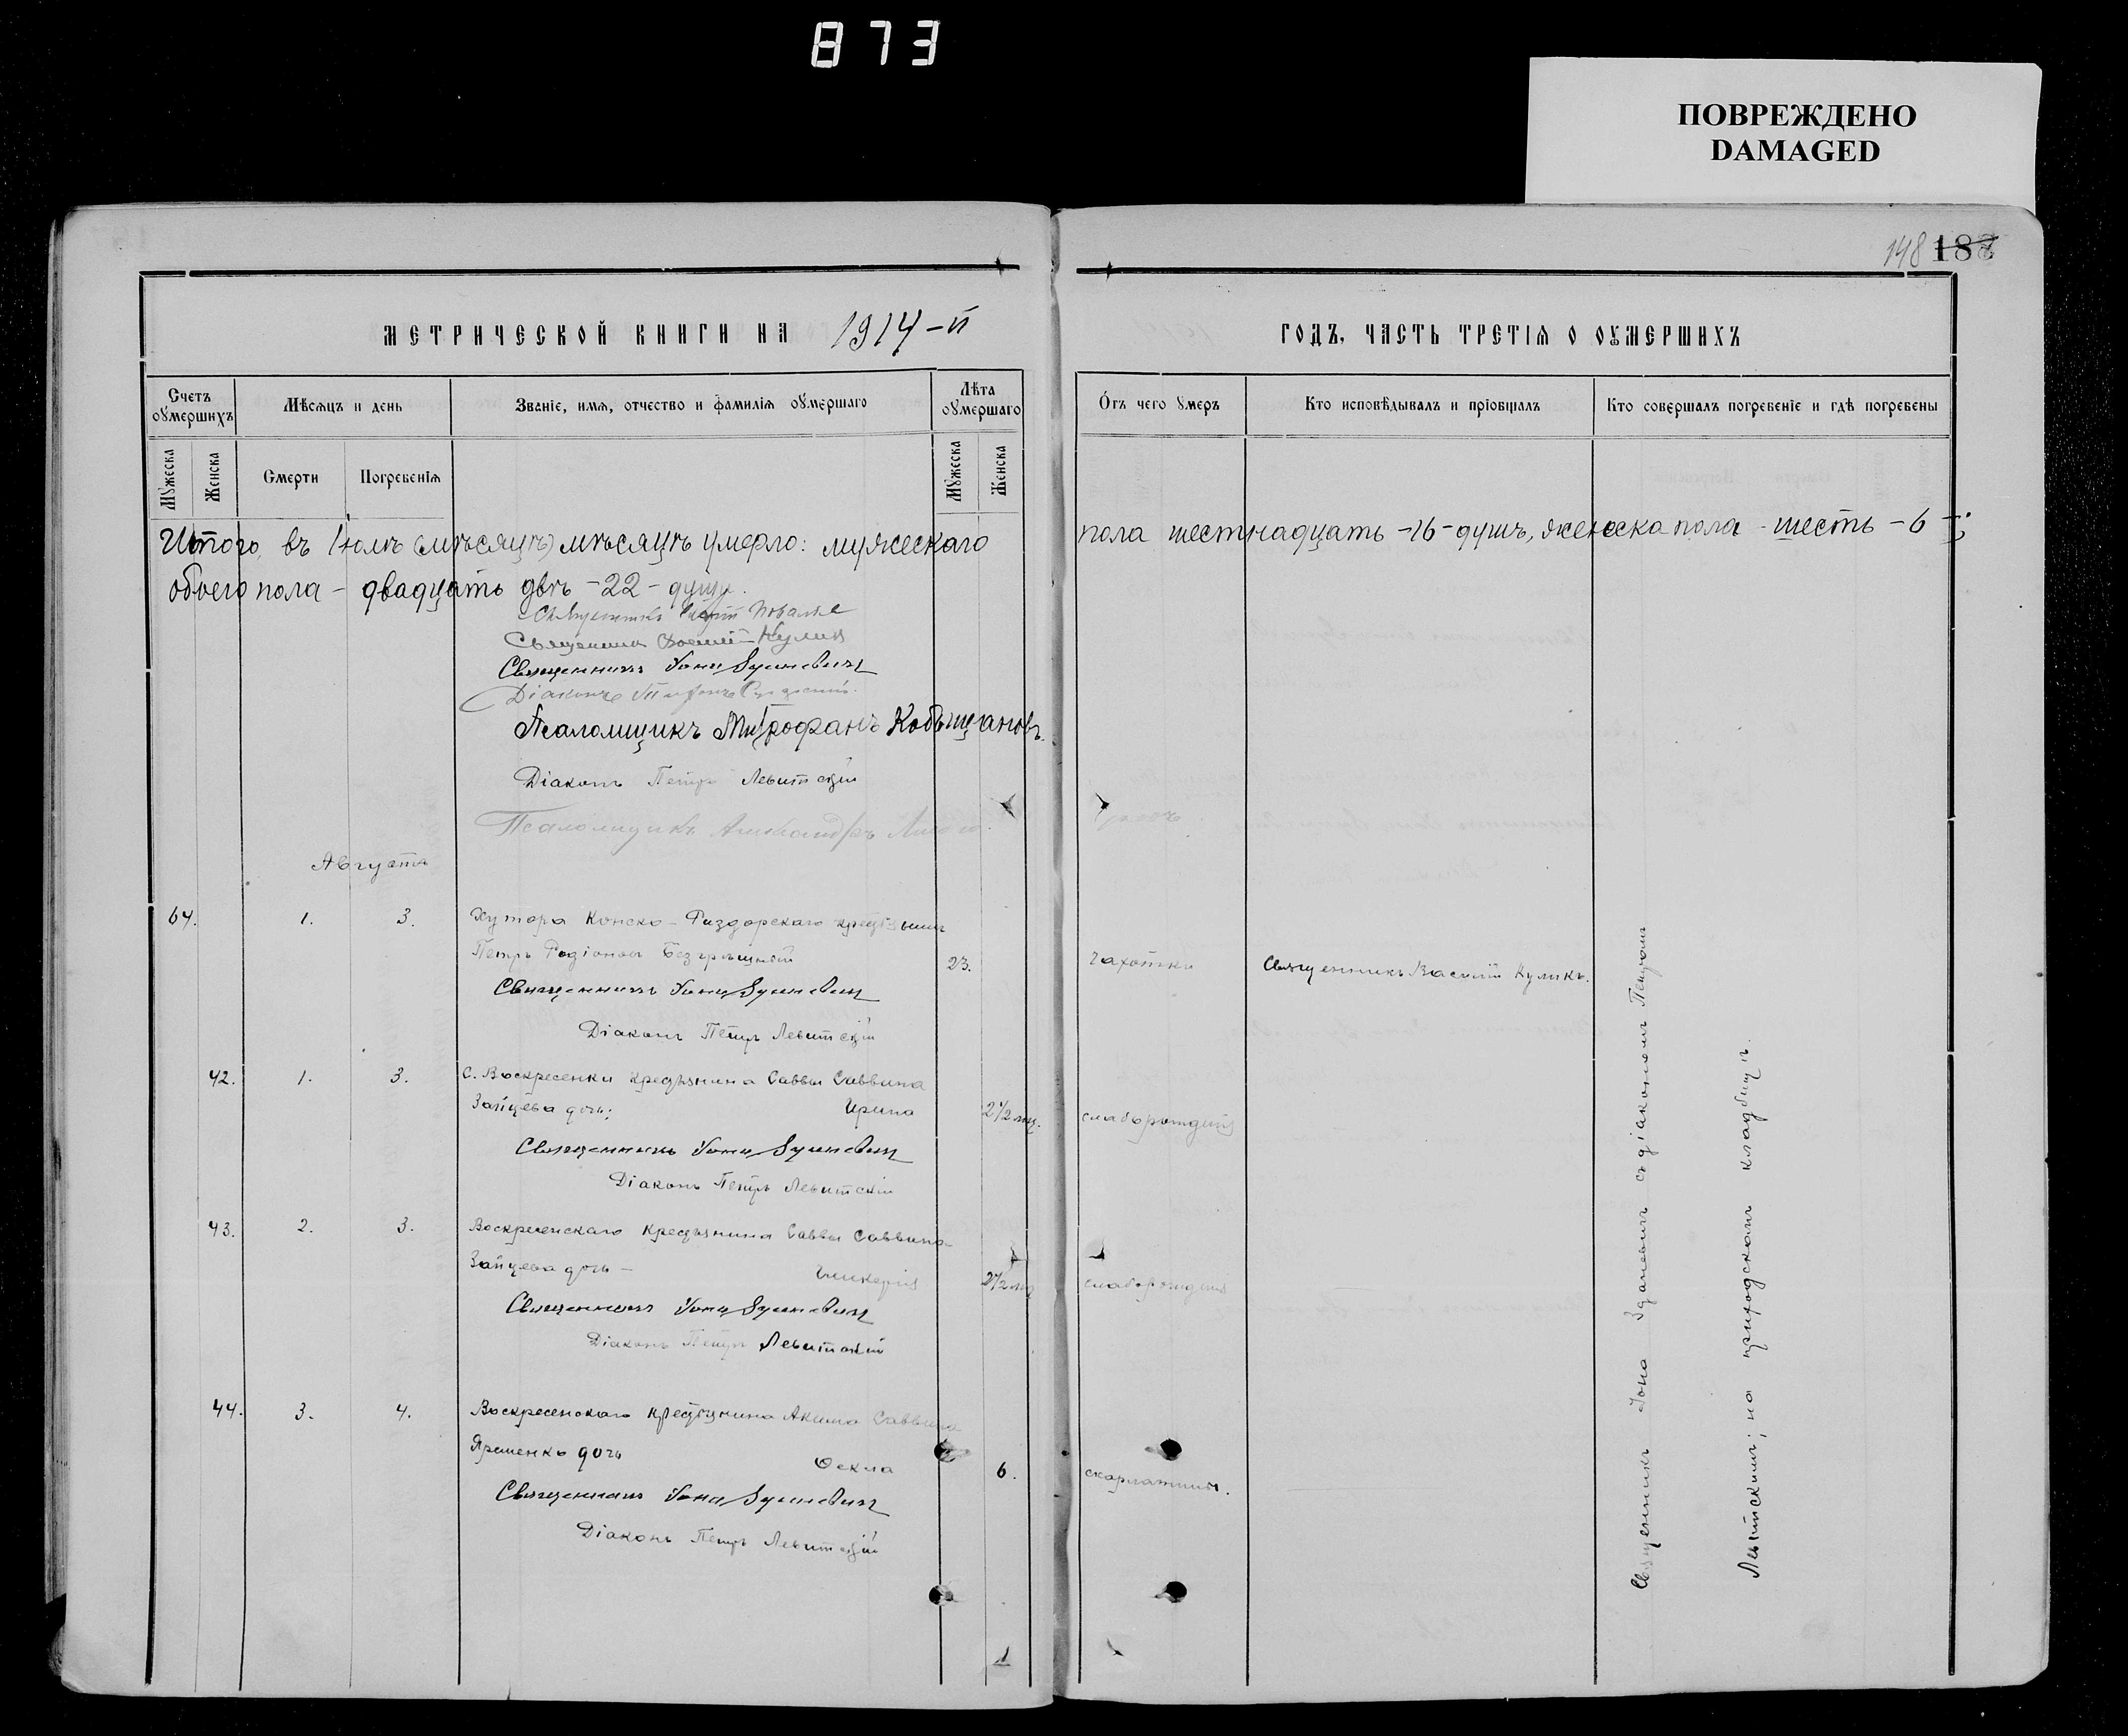 873
ПОВРЕЖДЕНО
DAMAGED
148 187
МЕТРИЧЕСКОЙ КНИГИ НА 1914-й
ГОДЪ, ЧАСТЬ ТРЕТІЯ О ОУМЕРШИХЪ
Счетъ оумершихъ
Мѣсяцъ и день
Званіе, имя, отчество и фамилія оумершаго
Лѣта оумершаго
Отъ чего умеръ
Кто исповѣдывалъ и пріобщалъ
Кто совершалъ погребеніе и гдѣ погребены
Мужеска
Женска
Смерти
Погребенія
Мужеска
Женска
Итого, въ Іюлѣ (мѣсяцѣ) мѣсяцѣ умерло: мужескаго пола шестнадцать -16- душъ, женска пола - шесть - 6 -;
обоего пола - двадцать двѣ -22- души.
Священникъ
Священникъ Василій Куликъ
Священникъ Іона
Діаконъ
Псаломщикъ Митрофанъ Кобыщановъ.
Діаконъ Петръ Левитскій
Псаломщикъ Александръ
Августъ
64. 1. 3. Хутора Конско-Раздорскаго крестьянинъ
Петръ Родіоновъ Безкрышный 23. Чахотки Священникъ Василій Куликъ.
Священникъ Іона
Діаконъ Петръ Левитскій
42. 1. 3. С. Воскресенки крестьянина Саввы Саввина
Зайцева дочь; Ирина 2 1/2 мц. слаборожденія
Священникъ Іона
Діаконъ Петръ Левитскій
43. 2. 3. Воскресенскаго крестьянина Саввы Саввина
Зайцева дочь - Гликерія 2 1/2 мц слаборожденія
Священникъ Іона
Діаконъ Петръ Левитскій
44. 3. 4. Воскресенскаго крестьянина Акима Саввина
Яременко дочь Ѳекла 6. скарлатины.
Священникъ Іона
Діаконъ Петръ Левитскій
Священникъ Іона съ діакономъ Петромъ
Левитскимъ; на приходскомъ кладбищѣ.